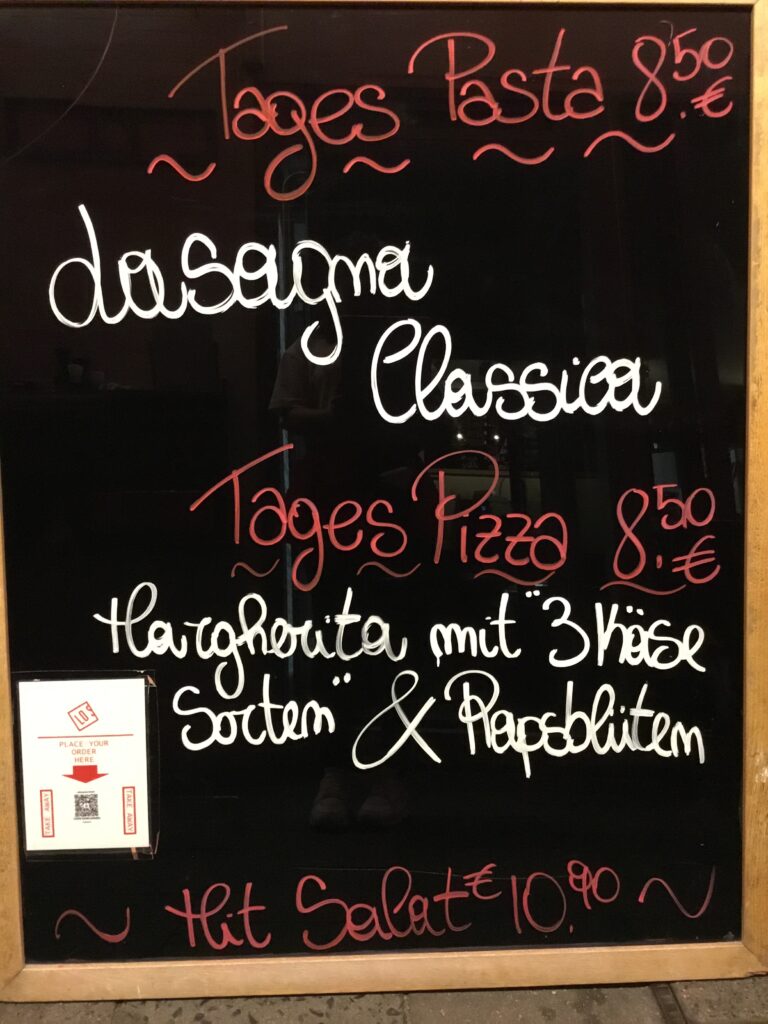 Tages Pasta 8.50 €
Lasagna
Classica
Tages Pizza 8.50 €
Margherita mit "3 Käse
Sorten" & Rapsblüten
LOS
PLACE YOUR
ORDER
HERE
TAKE AWAY
TAKE AWAY
~ Mit Salat € 10.90 ~